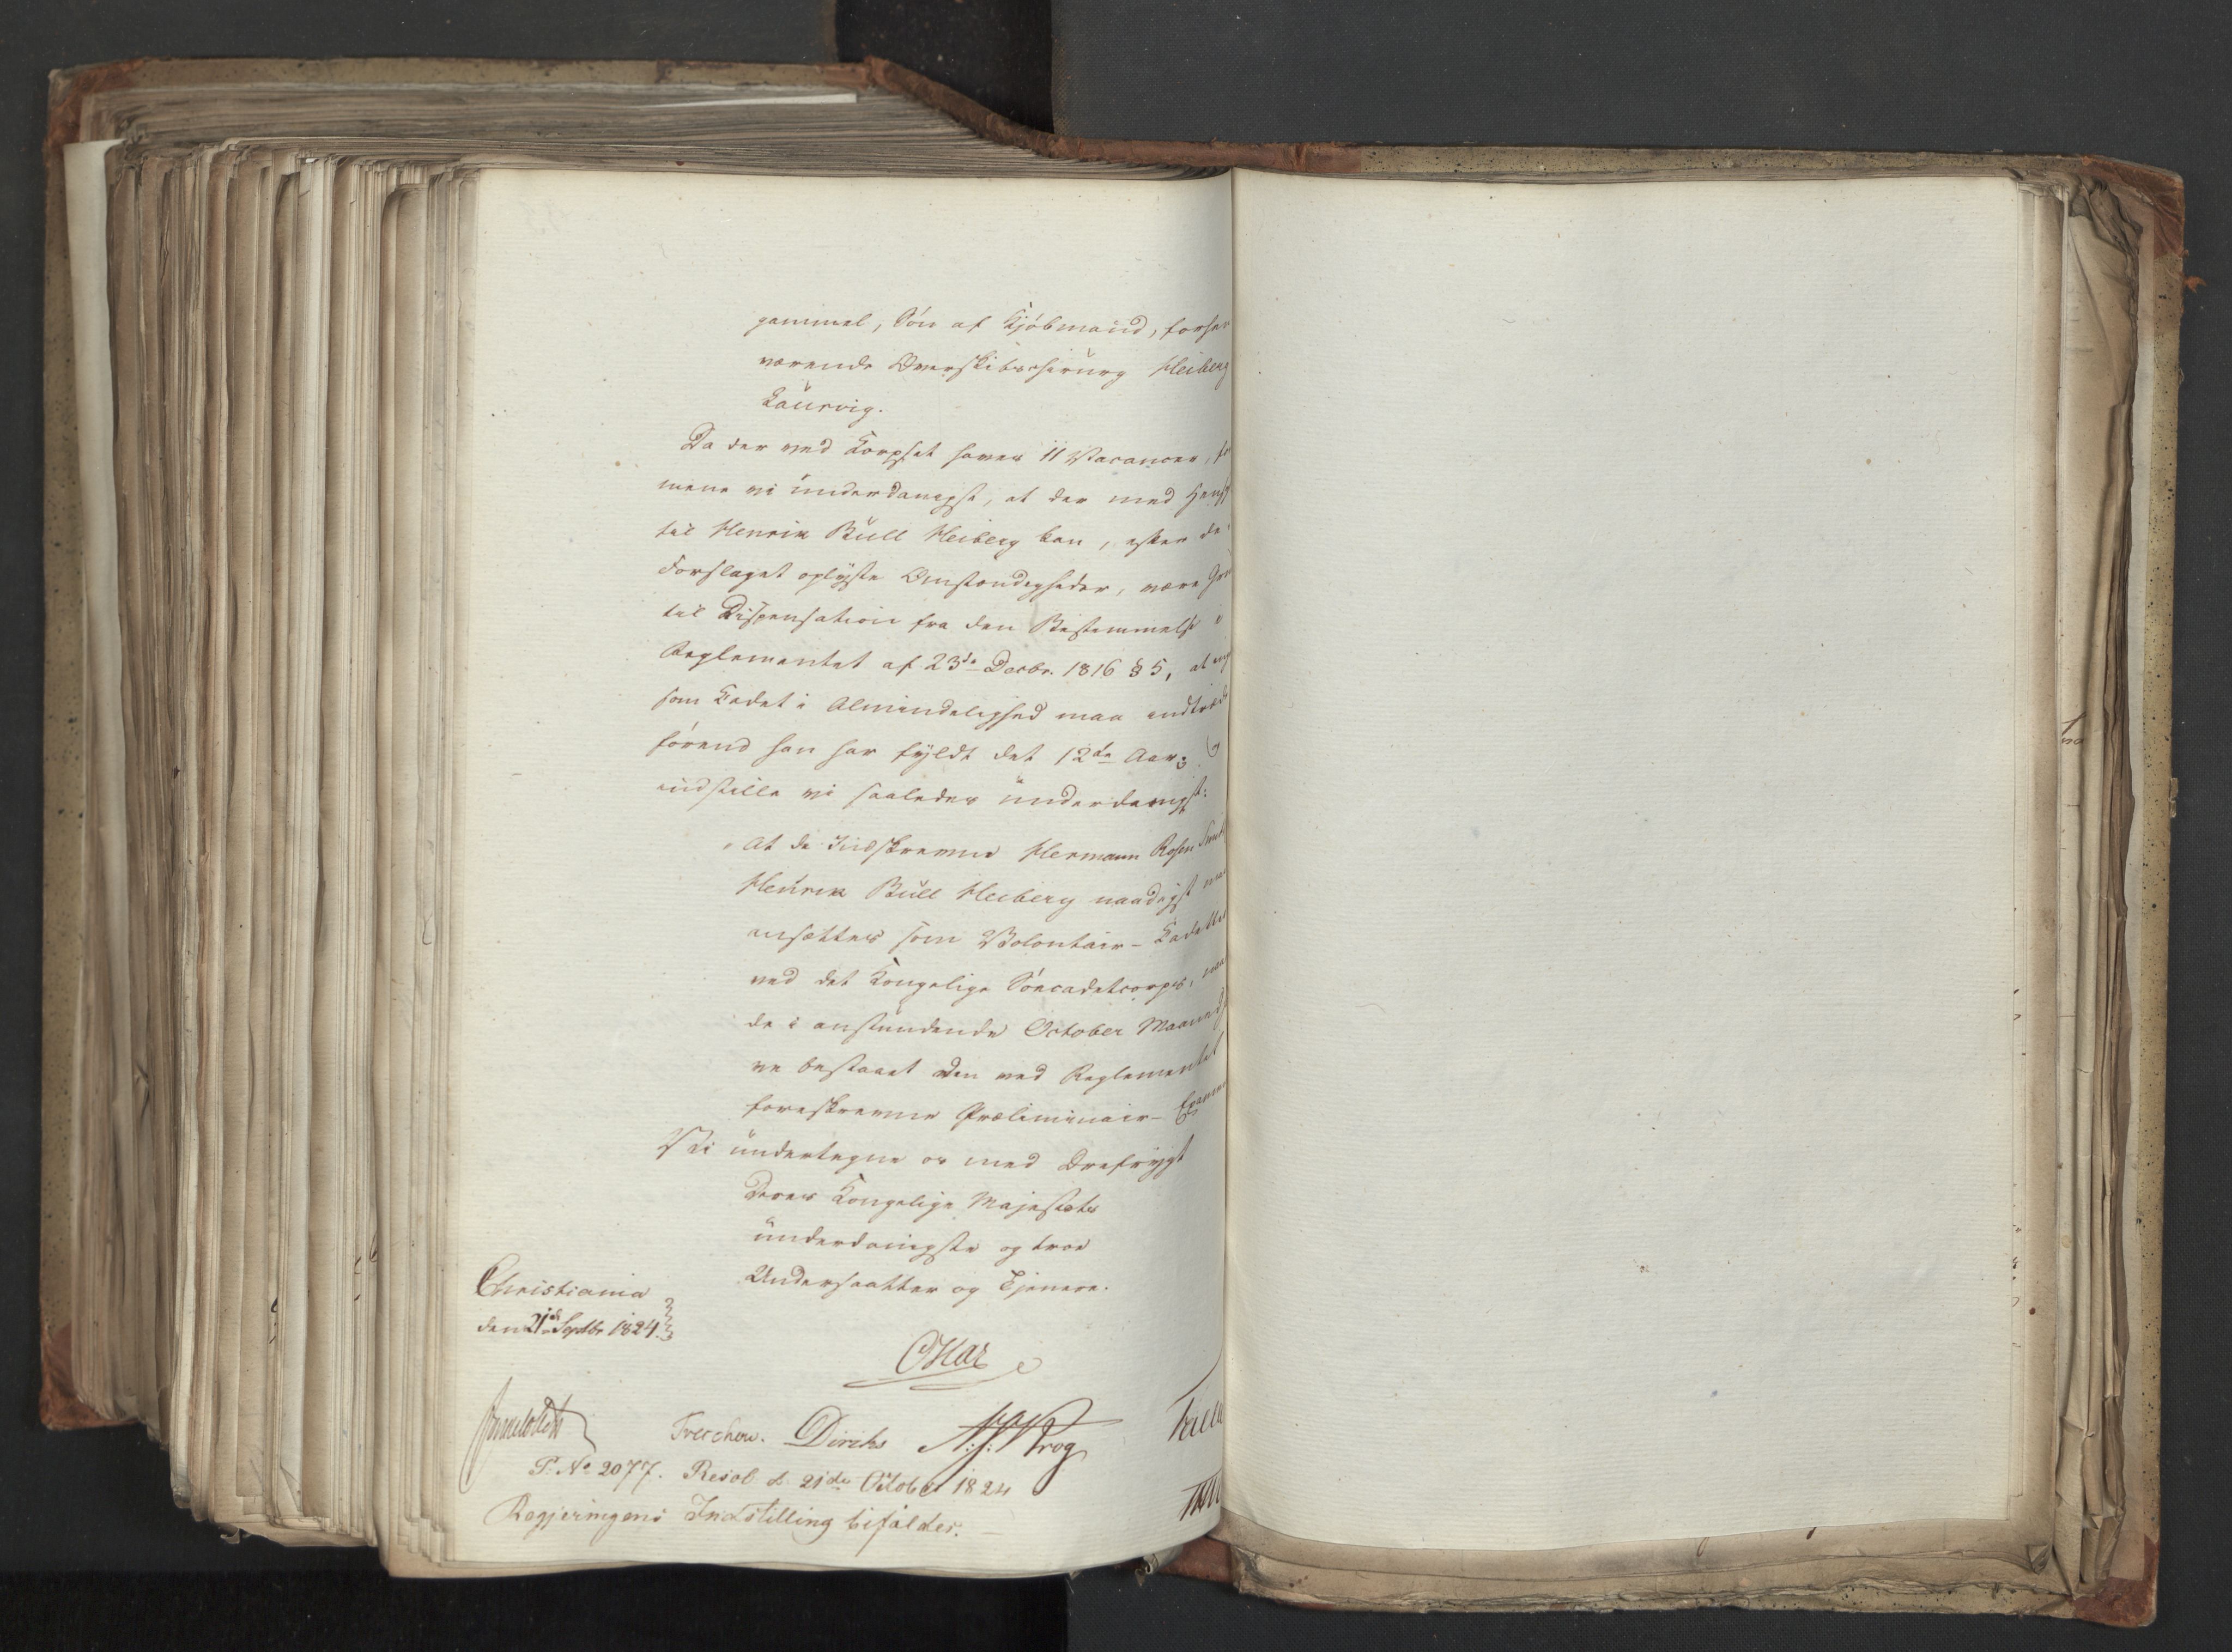 gammel, Søn af Kjøbmand, forhen
værende Overskibschirurg Heiberg
Laurvig.
Da der ved Korpset haves 11 Vacancer, for
mene vi underdanigst, at der med Hens
til Henrik Bull Heiberg kan, efter de i
Forslaget oplyste Omstændigheder, være Gru
til Dispensation fra den Bestemmelse i
Reglementet af 23de Decbr. 1816 § 5, at ing
som Kadet i Almindelighed maa indtræde
førend han har fyldt det 12te Aar; Og
indstille vi saaledes underdanigst:
"At de Indskrevne Hermann Rosen Smit
Henrik Bull Heiberg naadigst maa
ansættes som Volontair-Kadetter
ved det Kongelige Søecadetcorps, naar
de i anstundende October Maaned ha
ve bestaaet den ved Reglementet
foreskrevne Præliminair-Examen
Vi undertegne os med Dyb frygt
Deres Kongelige Majestæts
underdanigste og troe
Undersaatter og Tjenere.
Christiania
den 21de Septbr 1824.
Oskar
Sommerhielm Treschow. Diriks A: J: Krog
P. No 2077. Resol. d. 21de October 1824
Regjeringens Indstilling bifaldes.